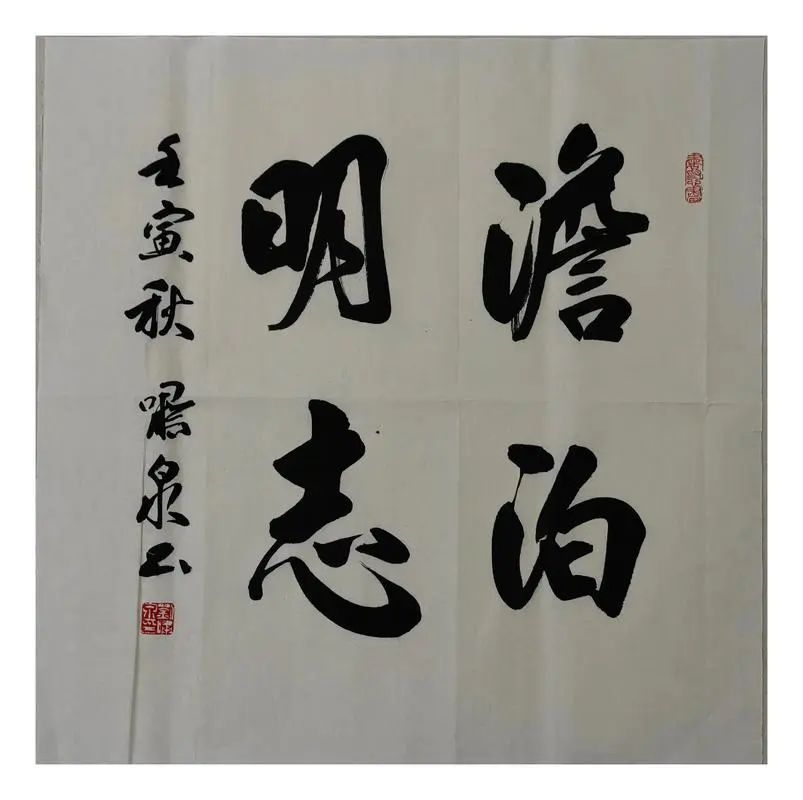 澹泊
明志
壬寅秋 泉书